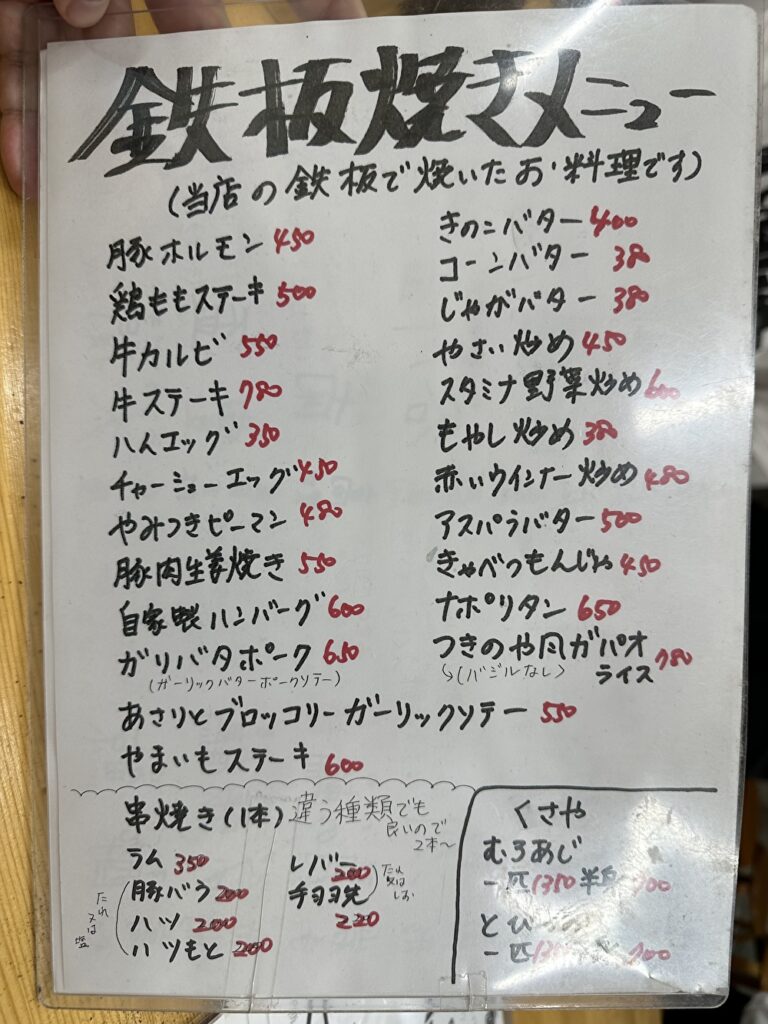 鉄板焼きメニュー
(当店の鉄板で焼いたお料理です)
豚ホルモン 450
鶏ももステーキ 500
牛カルビ 550
牛ステーキ 780
ハムエッグ 350
チャーシューエッグ 450
やみつきピーマン 480
豚肉生姜焼き 550
自家製ハンバーグ 600
ガリバタポーク 650
(ガーリックバターポークソテー)
きのこバター 400
コーンバター 380
じゃがバター 380
やさい炒め 450
スタミナ野菜炒め 600
もやし炒め 380
赤いウインナー炒め 480
アスパラバター 500
きゃべつもんじゃ 450
ナポリタン 650
つきのや風ガパオ
(バジルなし) ライス 780
あさりとブロッコリーガーリックソテー 550
やまいもステーキ 600
串焼き(1本) 違う種類でも
良いので
2本〜
ラム 350
豚バラ 200
ハツ 200
ハツもと 200
たれ又は塩
レバー 200
手羽先
220
たれ
又は
しお
くさや
むろあじ
一匹 1350 半身 700
とび
一匹 700